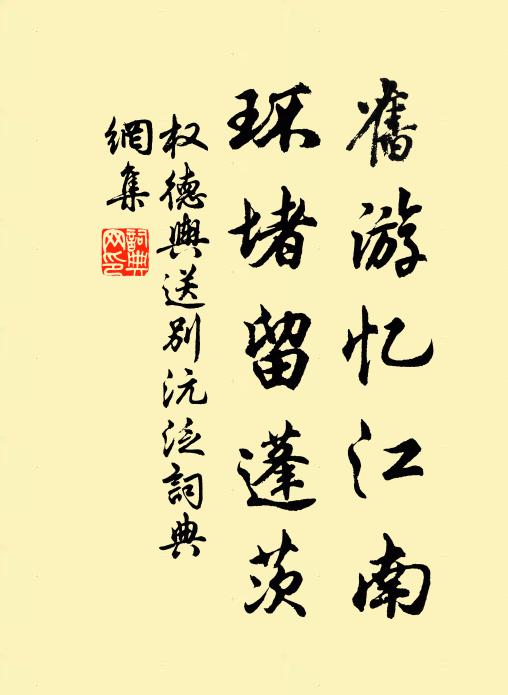 舊游忆江南
环堵留蓬茨
权德輿送别沅泛詞典
網集
詞典
网印